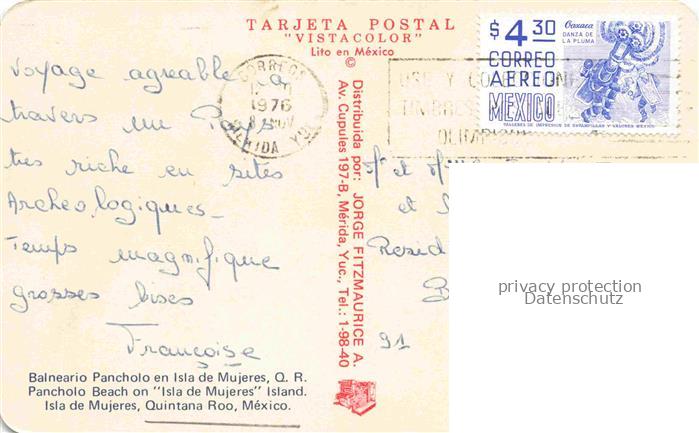 TARJETA POSTAL
"VISTACOLOR"
Lito en México
©
Distribuida por: JORGE FITZMAURICE A.
Av. Cupules 197-B, Mérida, Yuc., Tel.: 1-98-40
$4.30
CORREO
AEREO
MEXICO
Oaxaca
DANZA DE
LA PLUMA
TALLERES DE IMPRESION DE ESTAMPILLAS Y VALORES MEXICO
CORREOS
1976
MERIDA YUC
USE Y
TIMBRES
Voyage agreable a
travers un Pays
tres riche en sites
Archeologiques_
Temps magnifique
grosses bises
Françoise
Mr et
et
Resid
91
Balneario Pancholo en Isla de Mujeres, Q. R.
Pancholo Beach on "Isla de Mujeres" Island.
Isla de Mujeres, Quintana Roo, México.
privacy protection
Datenschutz